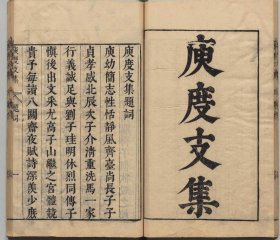 庾度支集
庾度支集題詞
庾幼簡志性恬靜風齊臺尚長子子
貞孝感北辰次子介清重洗馬一家
行義誠足與劉子珪明休烈同傳子
慎後出文采尤高子山繼之宮體競
貴予每讀八關齋夜賦詩深美少庶